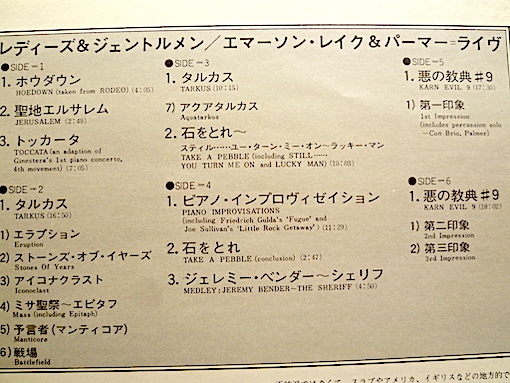 レディーズ&ジェントルメン/エマーソン・レイク&パーマー=ライヴ
●SIDE－1
1. ホウダウン
HOEDOWN (taken from RODEO) (4:05)
2. 聖地エルサレム
JERUSALEM (2:49)
3. トッカータ
TOCCATA (an adaption of
Ginestera's 1st piano concerto,
4th movement) (7:05)
●SIDE－2
1. タルカス
TARKUS (16:50)
1) エラプション
Eruption
2) ストーンズ・オブ・イヤーズ
Stones Of Years
3) アイコナクラスト
Iconoclast
4) ミサ聖祭～エピタフ
Mass (including Epitaph)
5) 予言者(マンティコア)
Manticore
6) 戦場
Battlefield
●SIDE－3
1. タルカス
TARKUS (10:15)
7) アクアタルカス
Aquatarkus
2. 石をとれ～
スティル……ユー・ターン・ミー・オン～ラッキー・マン
TAKE A PEBBLE (including STILL……
YOU TURN ME ON and LUCKY MAN) (10:03)
●SIDE－4
1. ピアノ・インプロヴィゼイション
PIANO IMPROVISATIONS
(including Friedrich Gulda's 'Fugue' and
Joe Sullivan's 'Little Rock Getaway') (11:29)
2. 石をとれ
TAKE A PEBBLE (conclusion) (2:47)
3. ジェレミー・ベンダー～シェリフ
MEDLEY: JEREMY BENDER～THE SHERIFF (4:50)
●SIDE－5
1. 悪の教典#9
KARN EVIL 9 (17:30)
1) 第一印象
1st Impression
(includes percussion solo
－Con Brio, Palmer)
●SIDE－6
1. 悪の教典#9
KARN EVIL 9 (18:02)
1) 第二印象
2nd Impression
2) 第三印象
3rd Impression
スラブやアメリカ、イギリスなどの地方的で